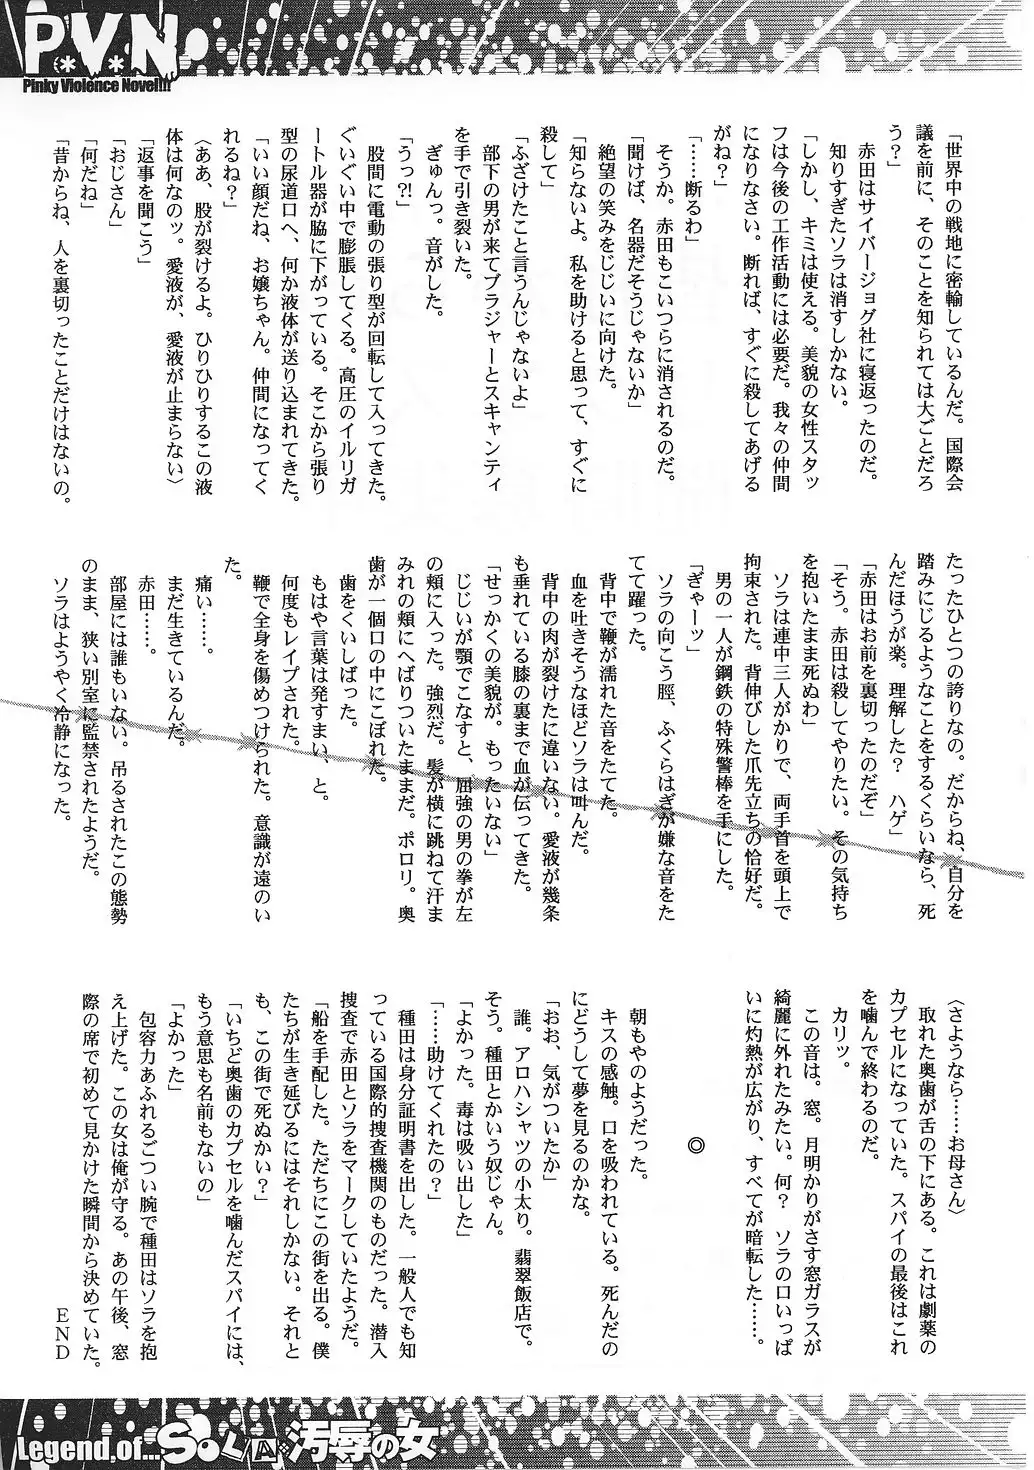 P*V*N
Pinky Violence Novel!!!
「世界中の戦地に密輸しているんだ。国際会
議を前に、そのことを知られては大ごとだろ
う？」
赤田はサイバージョグ社に寝返ったのだ。
知りすぎたソラは消すしかない。
「しかし、キミは使える。美貌の女性スタッ
フは今後の工作活動には必要だ。我々の仲間
になりなさい。断れば、すぐに殺してあげる
がね？」
「……断るわ」
そうか。赤田もこいつらに消されるのだ。
「聞けば、名器だそうじゃないか」
絶望の笑みをじじいに向けた。
「知らないよ。私を助けると思って、すぐに
殺して」
「ふざけたこと言うんじゃないよ」
部下の男が来てブラジャーとスキャンティ
を手で引き裂いた。
ぎゅんっ。音がした。
「うっ?!」
股間に電動の張り型が回転して入ってきた。
ぐいぐい中で膨脹してくる。高圧のイルリガ
ートル器が脇に下がっている。そこから張り
型の尿道口へ、何か液体が送り込まれてきた。
「いい顔だね、お嬢ちゃん。仲間になってく
れるね？」
〈ああ、股が裂けるよ。ひりひりするこの液
体は何なのッ。愛液が、愛液が止まらない〉
「返事を聞こう」
「おじさん」
「何だね」
「昔からね、人を裏切ったことだけはないの。
たったひとつの誇りなの。だからね、自分を
踏みにじるようなことをするくらいなら、死
んだほうが楽。理解した？　ハゲ」
「赤田はお前を裏切ったのだぞ」
「そう。赤田は殺してやりたい。その気持ち
を抱いたまま死ぬわ」
ソラは連中三人がかりで、両手首を頭上で
拘束された。背伸びした爪先立ちの恰好だ。
男の一人が鋼鉄の特殊警棒を手にした。
「ぎゃーッ」
ソラの向こう脛、ふくらはぎが嫌な音をた
てて躍った。
背中で鞭が濡れた音をたてた。
血を吐きそうなほどソラは叫んだ。
背中の肉が裂けたに違いない。愛液が幾条
も垂れている膝の裏まで血が伝ってきた。
「せっかくの美貌が。もったいない」
じじいが顎でこなすと、屈強の男の拳が左
の頬に入った。強烈だ。髪が横に跳ねて汗ま
みれの頬にへばりついたままだ。ポロリ。奥
歯が一個口の中にこぼれた。
歯をくいしばった。
もはや言葉は発すまい、と。
何度もレイプされた。
鞭で全身を傷めつけられた。意識が遠のい
た。
痛い……。
まだ生きているんだ。
赤田……。
部屋には誰もいない。吊るされたこの態勢
のまま、狭い別室に監禁されたようだ。
ソラはようやく冷静になった。
〈さようなら……お母さん〉
取れた奥歯が舌の下にある。これは劇薬の
カプセルになっていた。スパイの最後はこれ
を噛んで終わるのだ。
カリッ。
この音は。窓。月明かりがさす窓ガラスが
綺麗に外れたみたい。何？　ソラの口いっぱ
いに灼熱が広がり、すべてが暗転した……。
◎
朝もやのようだった。
キスの感触。口を吸われている。死んだの
にどうして夢を見るのかな。
「おお、気がついたか」
誰。アロハシャツの小太り。翡翠飯店で。
そう。種田とかいう奴じゃん。
「よかった。毒は吸い出した」
「……助けてくれたの？」
種田は身分証明書を出した。一般人でも知
っている国際的捜査機関のものだった。潜入
捜査で赤田とソラをマークしていたようだ。
「船を手配した。ただちにこの街を出る。僕
たちが生き延びるにはそれしかない。それと
も、この街で死ぬかい？」
「いちど奥歯のカプセルを噛んだスパイには、
もう意思も名前もないの」
「よかった」
包容力あふれるごつい腕で種田はソラを抱
え上げた。この女は俺が守る。あの午後、窓
際の席で初めて見かけた瞬間から決めていた。
END
Legend of... SOLA・汚辱の女